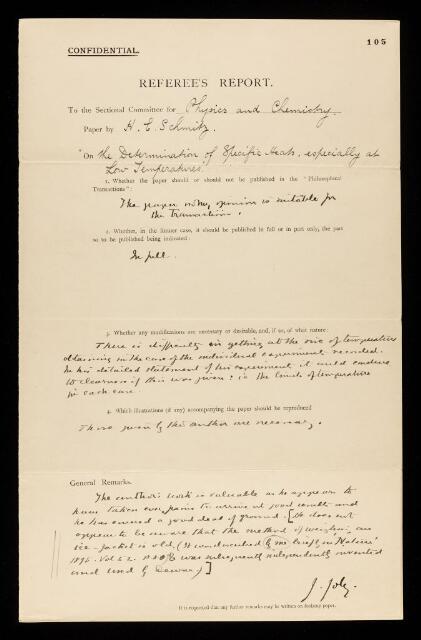 105
CONFIDENTIAL.
REFEREE'S REPORT.
To the Sectional Committee for Physics and Chemistry.
Paper by H. E. Schmitz.
"On the Determination of Specific Heats, especially at
Low Temperatures.
1. Whether the paper should or should not be published in the "Philosophical
Transactions":
The paper in my opinion is suitable for
the Transactions.
2. Whether, in the former case, it should be published in full or in part only, the part
so to be published being indicated:
In full.
3. Whether any modifications are necessary or desirable, and, if so, of what nature:
There is difficulty in getting at the rise of temperature
obtaining in the case of the individual experiment recorded.
In his detailed statement of his experiment it would conduce
to clearness if this was given: ie the limits of temperature
in each case.
4. Which illustrations (if any) accompanying the paper should be reproduced
Those given by the author are necessary.
General Remarks.
The author's work is valuable as he appears to
have taken every pains to arrive at good results and
he has covered a good deal of ground. [He does not
appear to be aware that the method of weighing an
ice-jacket is old. (It was described by me briefly in 'Nature'
1895. Vol 52. & was subsequently independently invented
and used by Dewar.)]
J. Joly.
It is requested that any further remarks may be written on foolscap paper.